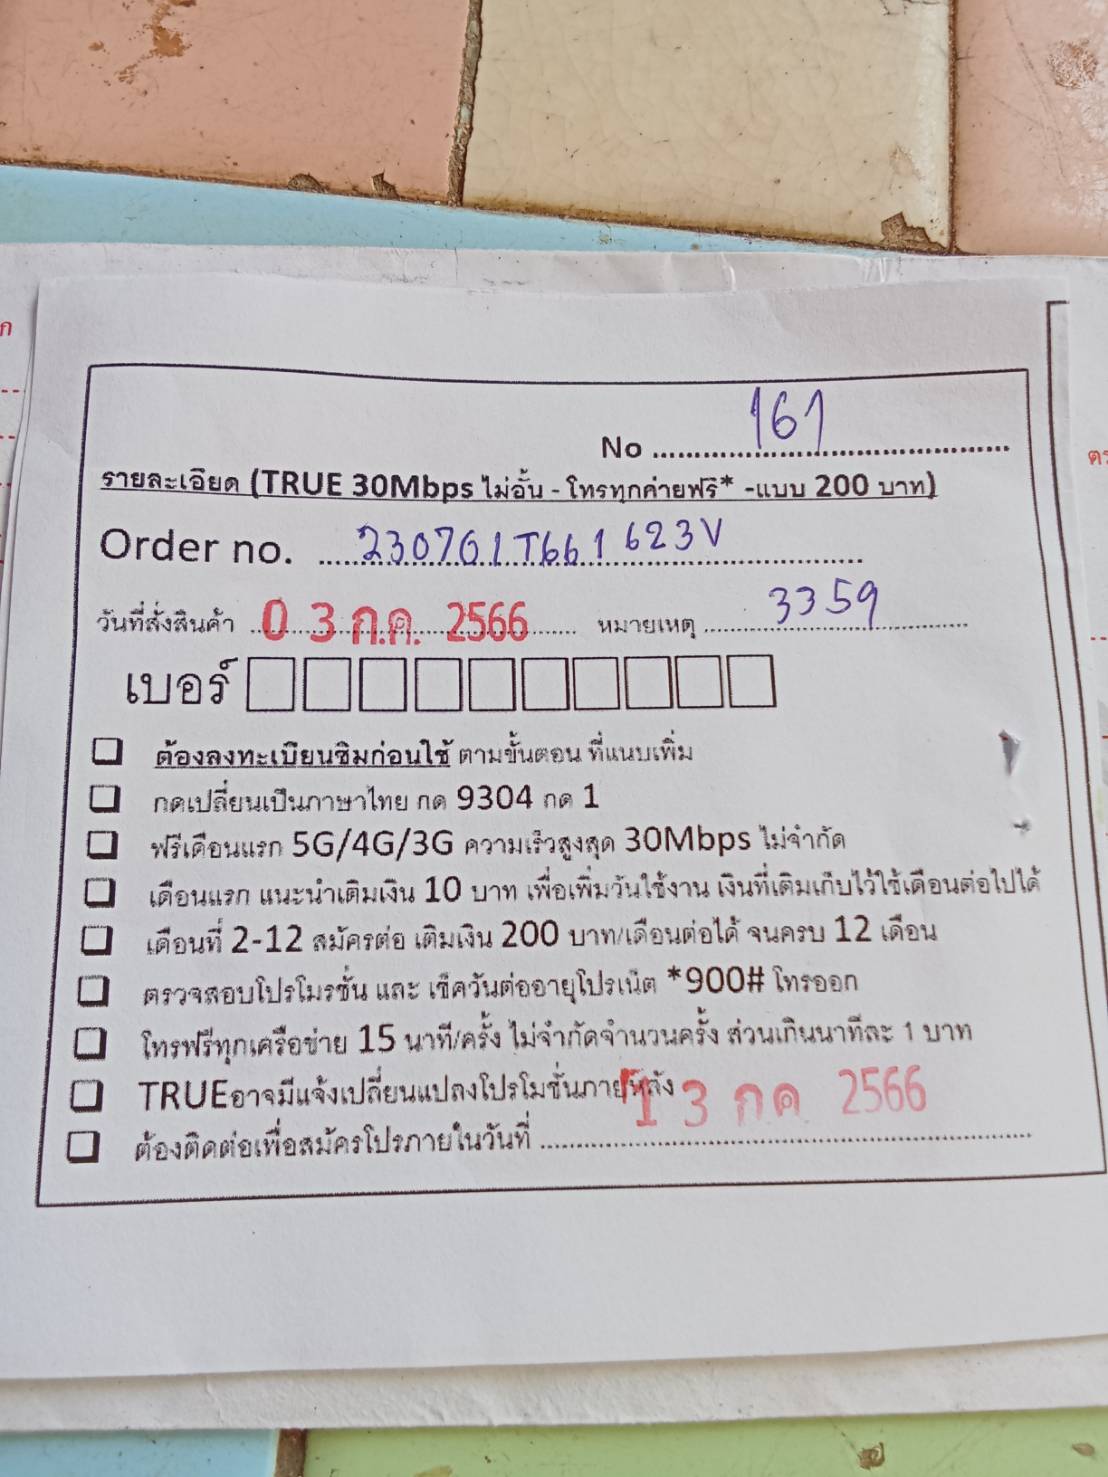 No 161
รายละเอียด (TRUE 30Mbps ไม่อั้น - โทรทุกค่ายฟรี* -แบบ 200 บาท)
Order no. 230701T661623V
วันที่สั่งสินค้า 0 3 ก.ค. 2566 หมายเหตุ 3359
เบอร์
ต้องลงทะเบียนซิมก่อนใช้ ตามขั้นตอน ที่แนบเพิ่ม
กดเปลี่ยนเป็นภาษาไทย กด 9304 กด 1
ฟรีเดือนแรก 5G/4G/3G ความเร็วสูงสุด 30Mbps ไม่จำกัด
เดือนแรก แนะนำเติมเงิน 10 บาท เพื่อเพิ่มวันใช้งาน เงินที่เติมเก็บไว้ใช้เดือนต่อไปได้
เดือนที่ 2-12 สมัครต่อ เติมเงิน 200 บาท/เดือนต่อได้ จนครบ 12 เดือน
ตรวจสอบโปรโมรชั่น และ เช็ควันต่ออายุโปรเน็ต *900# โทรออก
โทรฟรีทุกเครือข่าย 15 นาที/ครั้ง ไม่จำกัดจำนวนครั้ง ส่วนเกินนาทีละ 1 บาท
TRUEอาจมีแจ้งเปลี่ยนแปลงโปรโมชั่นภายหลัง
ต้องติดต่อเพื่อสมัครโปรภายในวันที่ 1 3 กค 2566
ก
ตร